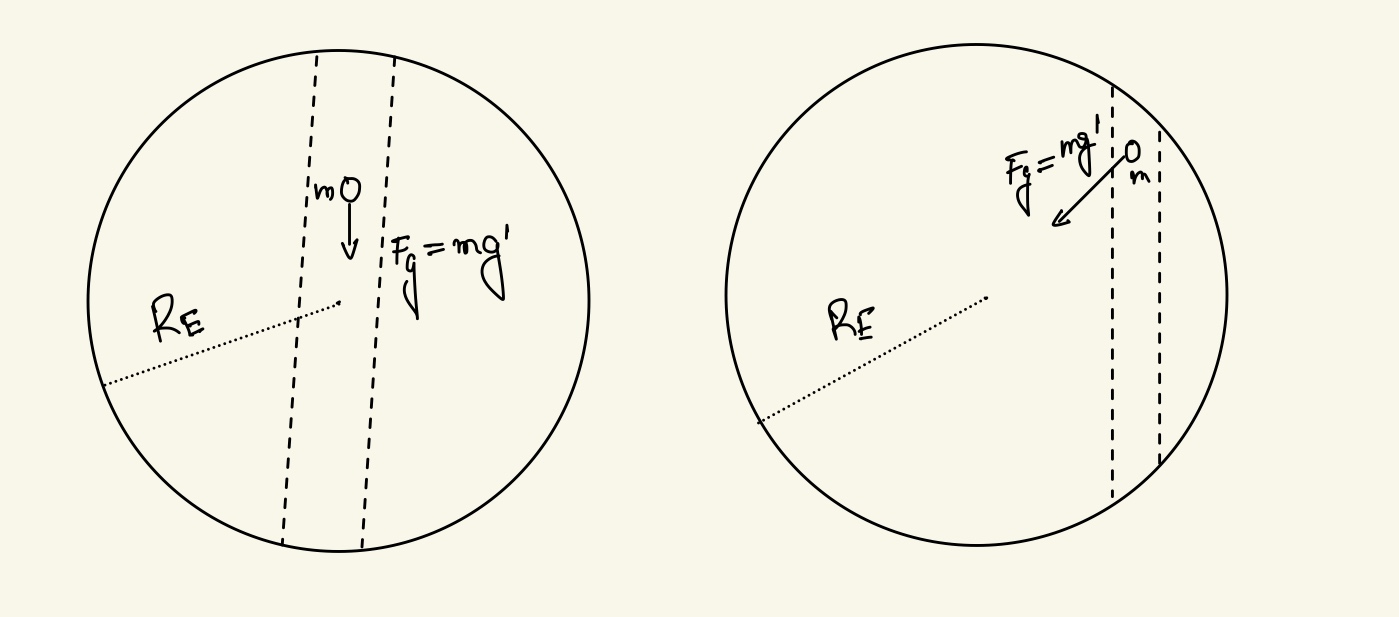 m
F_g = mg'
R_E
F_g = mg'
m
R_E